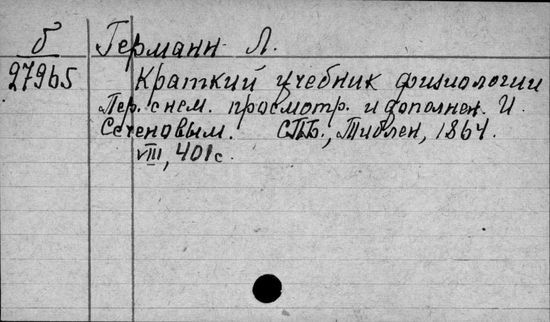 б Германн Л.
27965 Краткий учебник физиологии
Пер. с нем. просмотр. и дополнен. И.
Сеченовым. СПб., Тиблен, 1864.
VIII, 401 с.